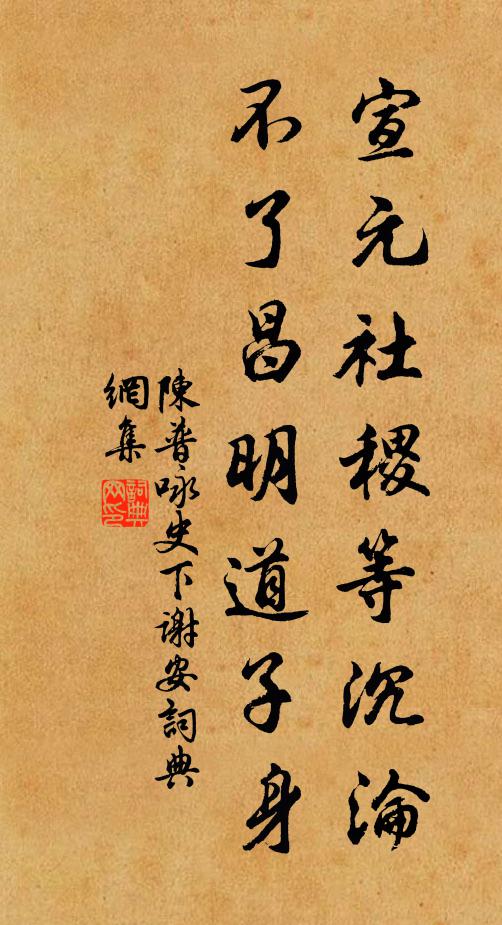 宣元社稷等沉淪
不了昌明道子身
陳普咏史下謝安詞典
網集
詞典
网印